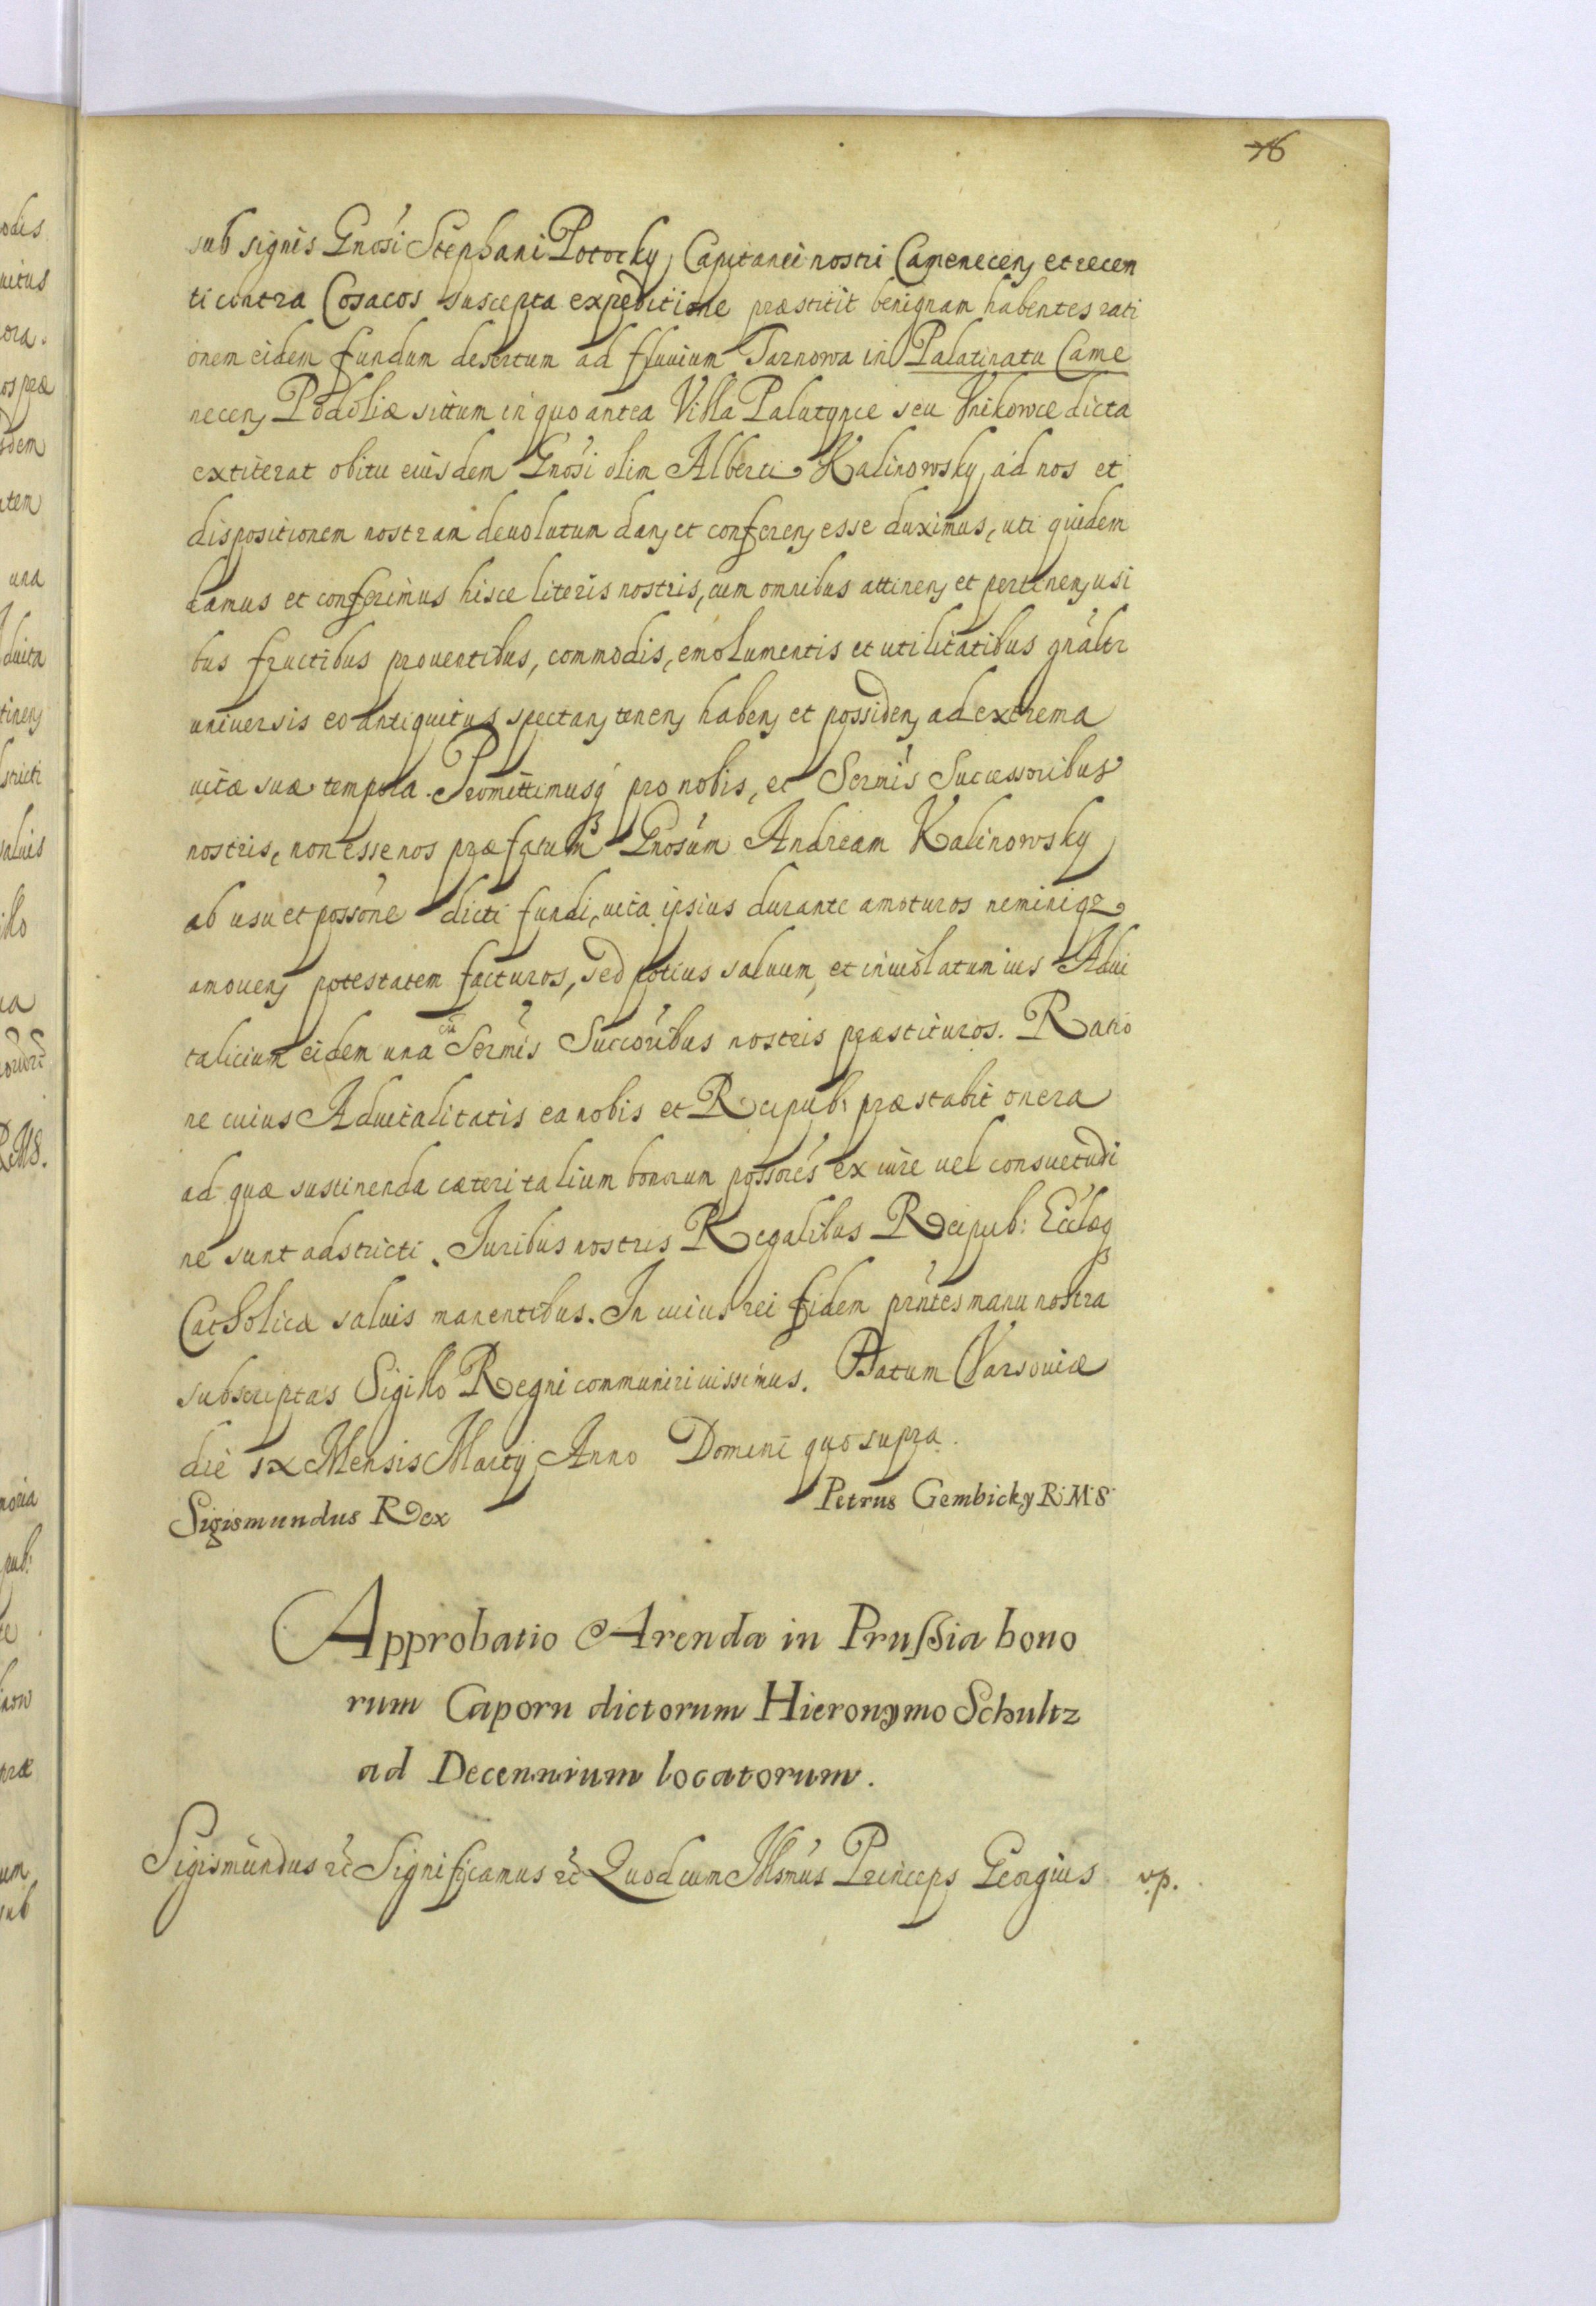 76
sub signis Gnosi Stephani Potocky Capitanei nostri Camenecens et recen
ti contra Cosacos suscepta expeditione præstitit benignam habentes rati
onem eidem fundum desertum ad fluuium Tarnowa in Palatinatu Came
necens Podoliæ situm in quo antea Villa Palutynce seu dicta
extiterat obitu eiusdem Gnosi olim Alberti Kalinowsky ad nos et
dispositionem nostram deuolutum dans et conferens esse duximus, uti quidem
damus et conferimus hisce literis nostris, cum omnibus attinens et pertinens usi
bus fructibus prouentibus, commodis, emolumentis et utilitatibus gnaltr
uniuersis eo antiquitus spectans tenens habens et possidens ad extrema
uitæ suæ tempora. Promittimusq pro nobis, et Sermis Successoribus
nostris, non esse nos præfatum Gnosum Andream Kalinowsky
ab usu et possone dicti fundi, uita ipsius durante amoturos neminiqz
amouens potestatem facturos, sed potius saluum, et inuiolatum ius Adui
talicium eidem una cū Sermis Succoribus nostris præstituros. Ratio
ne cuius Aduitalitatis ea nobis et Reipub: præstabit onera
ad quæ sustinenda cæteri talium bonorum possores ex iure uel consuetudi
ne sunt adstricti. Iuribus nostris Regalibus Reipub: Ecclæq
Catholicæ saluis manentibus. In cuius rei fidem prntes manu nostra
subscriptas Sigillo Regni communiri iussimus. Datum Varsouiæ
die IX Mensis Martij Anno Domini quo supra.
Sigismundus Rex
Petrus Gembicky R: M: S:
Approbatio Arenda in Prussia bono
rum Caporn dictorum Hieronymo Schultz
ad Decennium locatorum.
Sigismundus &c Significamus &c Quod cum Illsmus Princeps Georgius v.p.